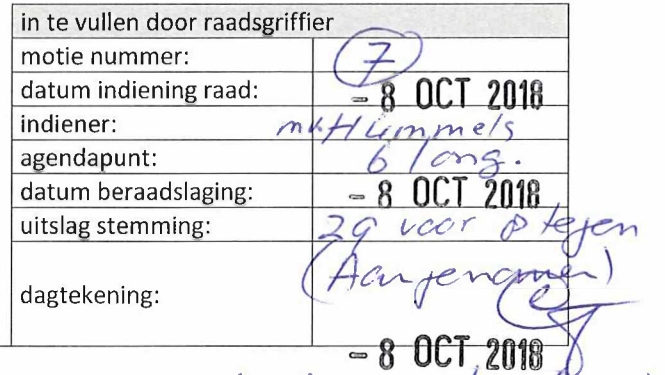 in te vullen door raadsgriffier
motie nummer: 7
datum indiening raad: - 8 OCT 2018
indiener: Hümmels
agendapunt: 6
datum beraadslaging: - 8 OCT 2018
uitslag stemming: 29 voor 8 tegen
(Aangenomen)
dagtekening:
- 8 OCT 2018